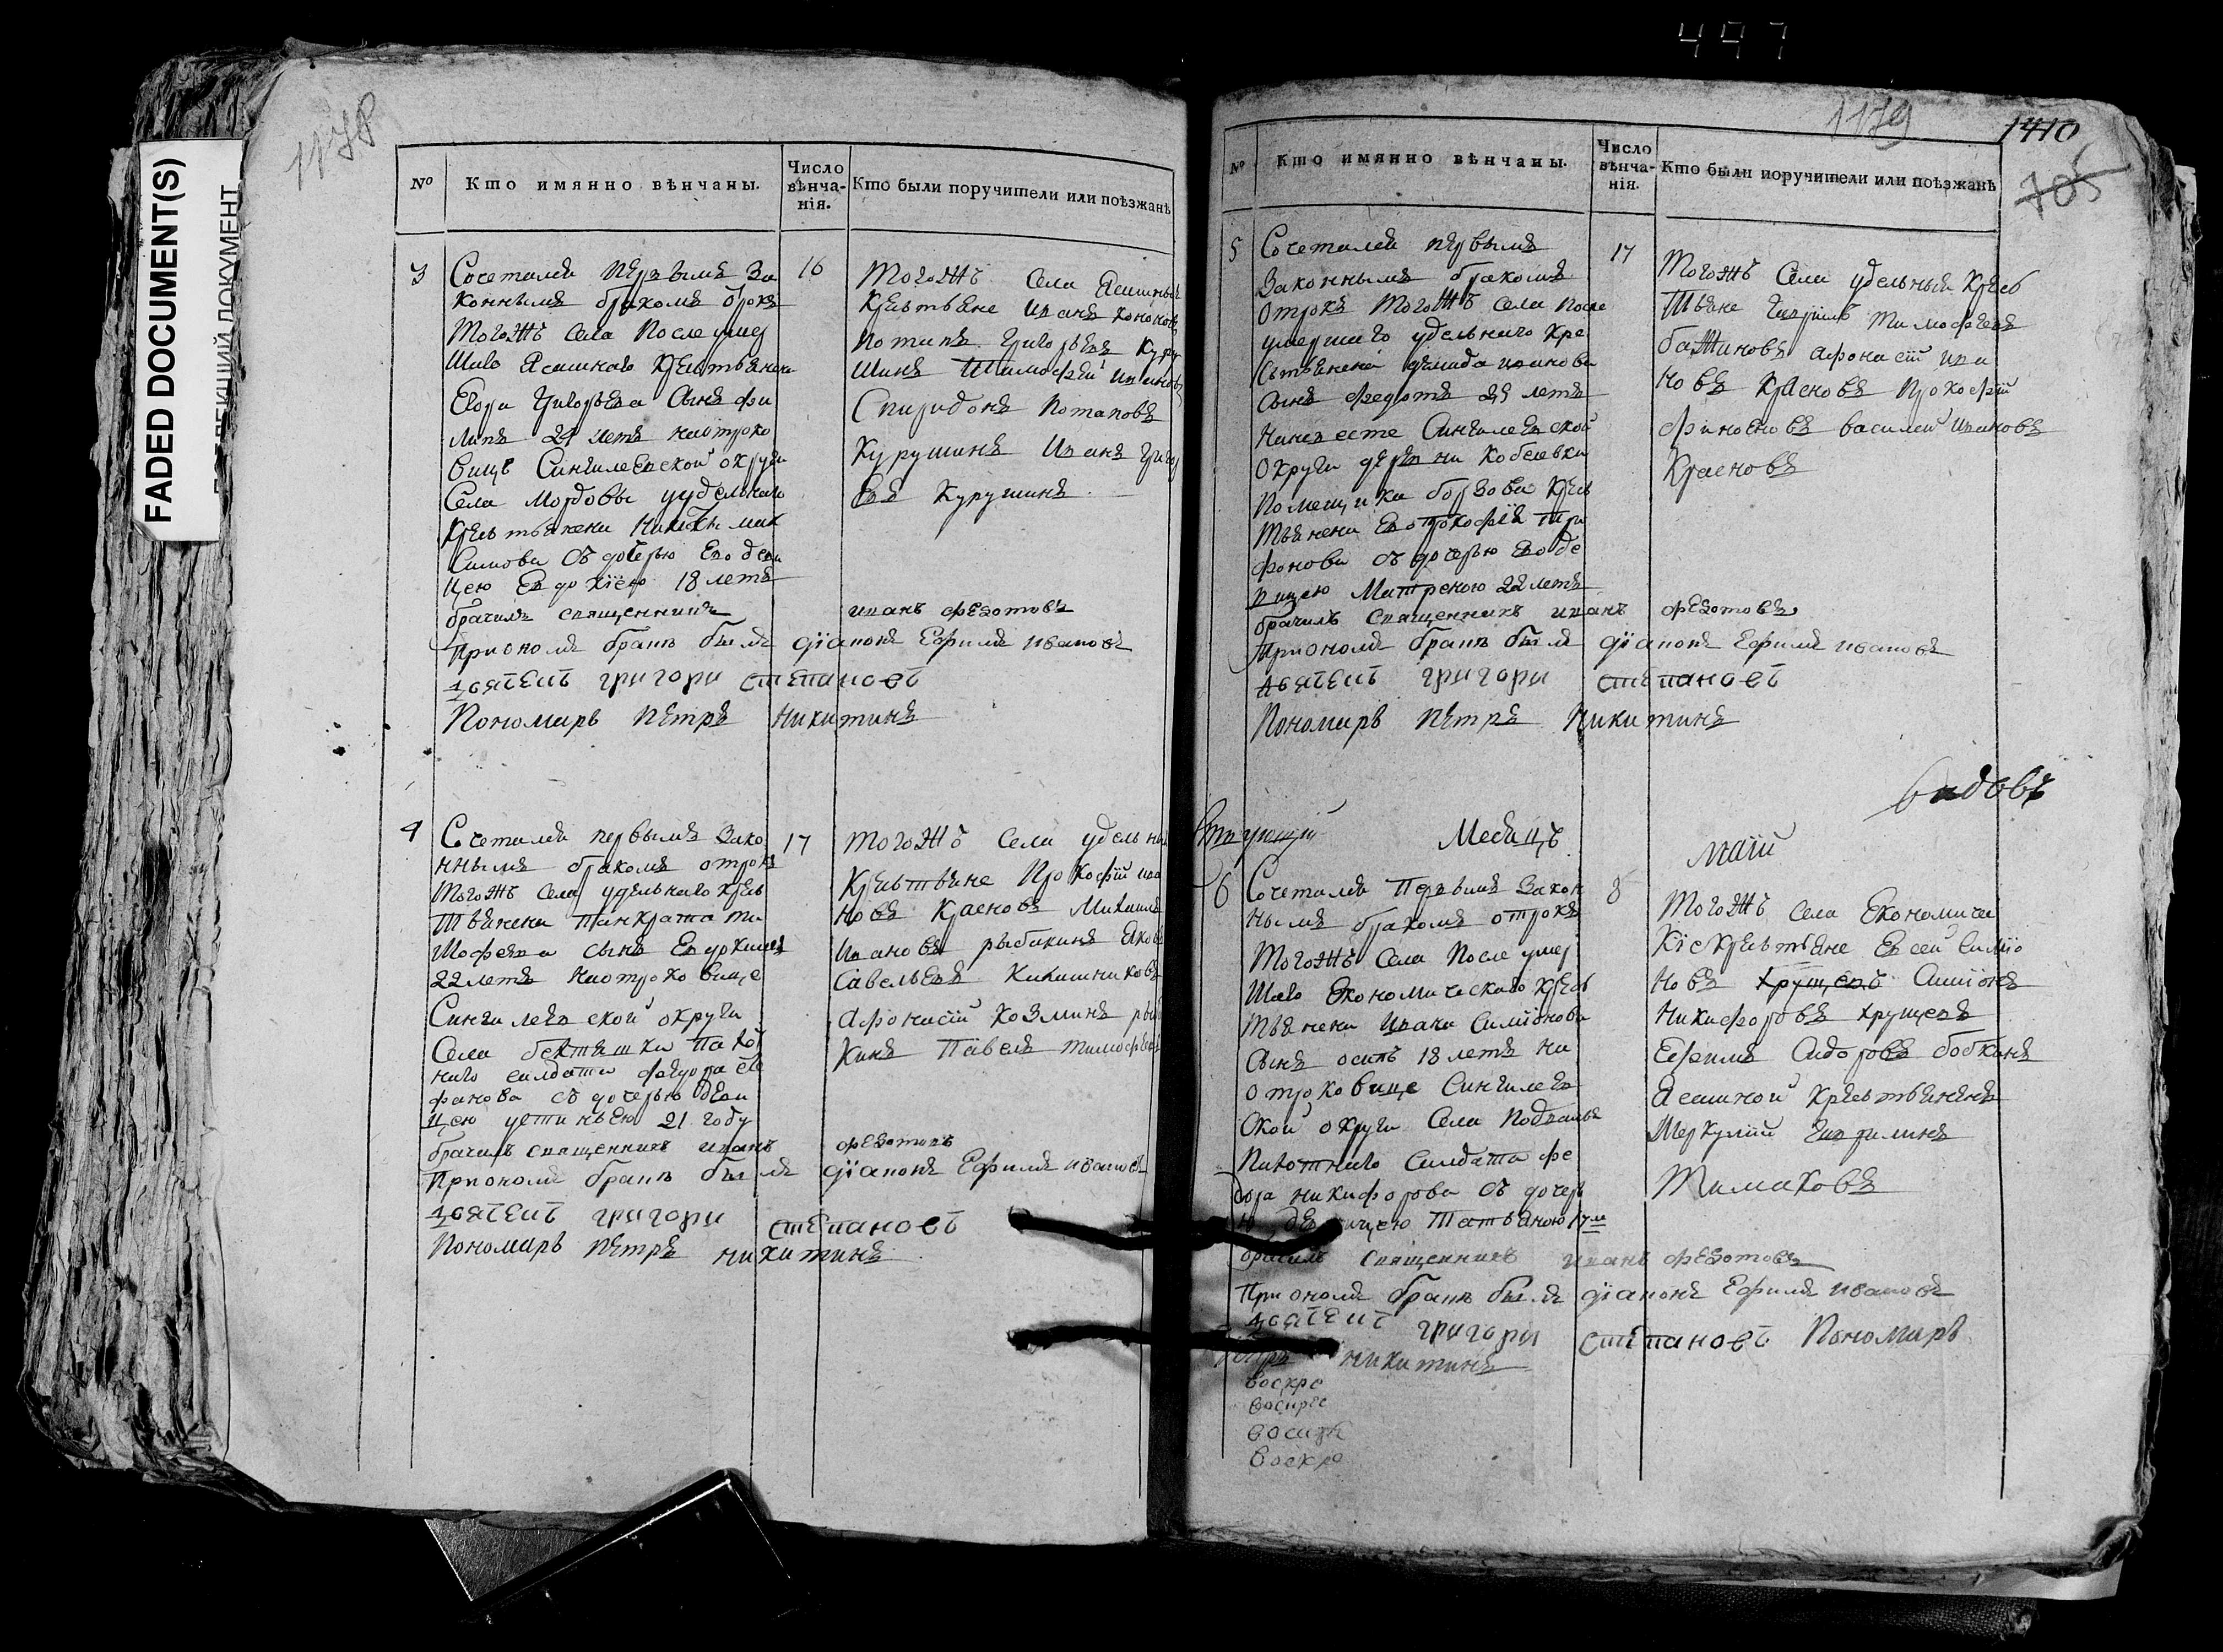 497
FADED DOCUMENT(S)
1178
№ Кто имянно вѣнчаны. Число вѣнча- нія. Кто были поручители или поѣзжанѣ
3 Сочеталса первымъ За 16
конннымъ бракомъ отрокъ
тогожъ села После умер
шаго Ясашнаго крестьянина
Егора Григорьева Сынъ Фи
липъ 21 летъ наотроко
вице Сингилевской округи
Села Мордовы удельнаго
крестьянена Никиты Мак
симова Съ дочерью Ево деви
цею Евдокіею 18 летъ
Тогожъ Села Ясашныя
крестьяне Иванъ Кононовъ
Потапъ Григорьевъ Куру
шинъ Тимофей Ивановъ
Спиридонъ Потаповъ
Курушинъ Иванъ Григор
евъ Курушинъ
брачилъ священникъ иванъ федотовъ
При ономъ бракѣ былъ діаконъ Ефимъ ивановъ
дьячекъ григори степановъ
Пономарь Петръ Никитинъ
4 Сочеталса первымъ зако 17
ннымъ бракомъ отрокъ
тогожъ села удельнаго крес
тьянена Панкрата Ти
мофеева сынъ Евдокимъ
22 летъ наотроковице
Сингилевской округи
Села бектяшки пахот
наго салдата Федора Сте
фанова съ дочерью деви
цею устиньею 21 году
тогожъ Села удельныя
крестьяне Прокофій ива
новъ Красновъ Михаила
Ивановъ рыбакинъ Яковъ
Савельевъ Кикишниковъ
Афонасій Козминъ рыба
кинъ Павелъ тимофеевъ
брачилъ священникъ иванъ федотовъ
При ономъ бракѣ былъ діаконъ Ефимъ ивановъ
дьячекъ григори степановъ
Пономарь Петръ никитинъ
1179
1410
705
№ Кто имянно вѣнчаны. Число вѣнча- нія. Кто были поручители или поѣзжанѣ
5 Сочеталса первымъ 17
Законнымъ бракомъ
отрокъ тогожъ села после
умершаго удельнаго кре
стьянена демида иванова
Сынъ федотъ 25 летъ
Наневесте Сингилевской
округи деревни Кобелевки
Помещика борзова крес
тьянена Евпрокофія Три
фонова съ дочерью ево де
вицею Матреною 22 летъ
Тогожъ Села удельныя крес
тьяне Гаврилъ тимофеевъ
бажановъ афонасій ива
новъ Красновъ Прокофій
финоеновъ василей ивановъ
Красновъ
брачилъ священникъ иванъ федотовъ
При ономъ бракѣ былъ діаконъ Ефимъ ивановъ
дьячекъ григори степановъ
Пономарь Петръ Никитинъ
Месяцъ маій
6 Сочеталса Первымъ закон 8
нымъ бракомъ отрокъ
тогожъ Села После умер
шаго Економическаго крес
тьянена Ивана Симіонова
Сынъ осипъ 18 летъ на
отроковице Сингилев
ской округи Села Подваль
Пахотнаго Салдата фе
дора никифорова съ дочерь
ю девицею татьяною 17 ле
Тогожъ села Економичес
кіе крестьяне Евсей симіо
новъ хрущевъ Симіонъ
Никифоровъ хрущевъ
Ефимъ Сидоровъ бобканъ
Ясашной крестьянинъ
Меркулій Гаврилинъ
Тимаковъ
брачилъ священникъ иванъ федотовъ
При ономъ бракѣ былъ діаконъ Ефимъ ивановъ
дьячекъ григори степановъ Пономарь
Петръ никитинъ
воскре
воскре
воскре